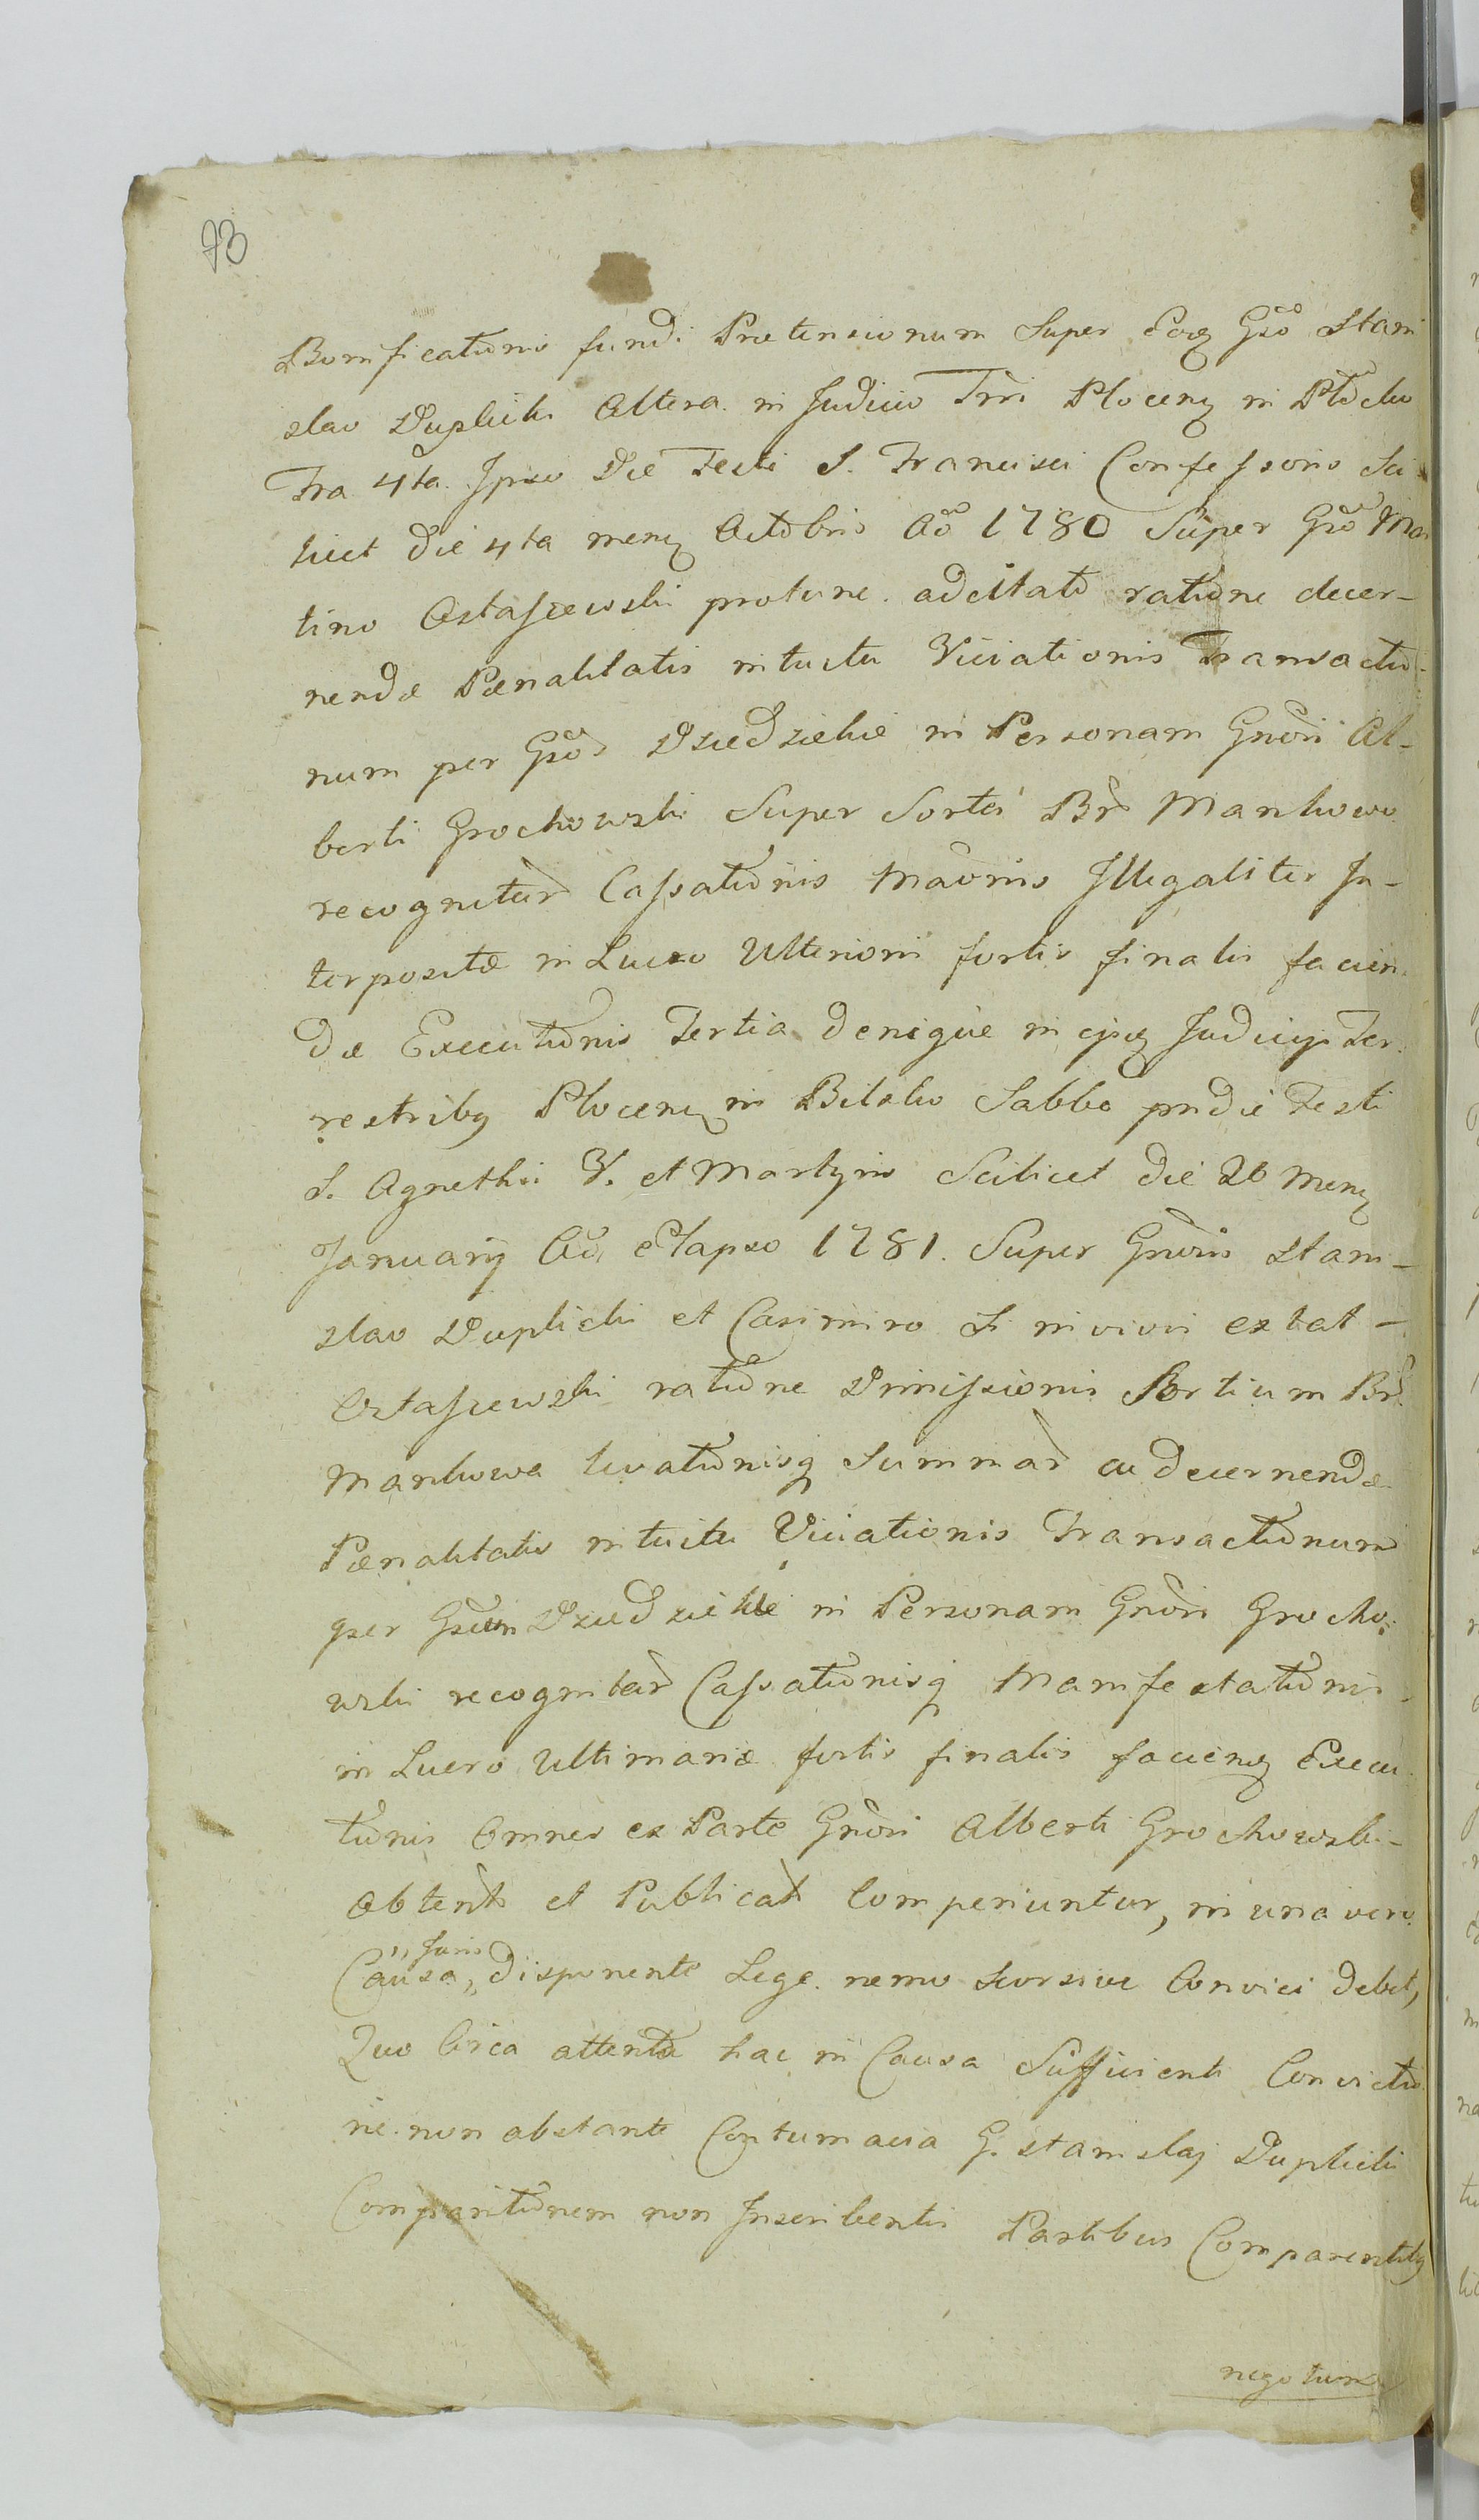 73
Bonificationis fundi Prætensionum Super Eoq Gso Stani
slao Duplicki Altera in Judicio Trri Plocenq in Płocko
Fra 4ta Ipso Die Festi S. Francisci Confessoris Sci
licet die 4ta menq Octobris Ao 1780 Super Gso Mar
tino Ostaszewski protunc adcitato ratione decer-
nendæ Pænalitatis intuitu Viciationis Transactio-
num per Gsos Dziedzickie in Personam Gnosi Al-
berti Grochowski Super Sortes Br Mankowo
recognitar Cassationis Maonis Illegaliter In-
terpositæ in Lucro Ulterioris fortis finalis facien
dæ Executionis Tertia denique in ejsq Judicijs Ter
restribq Plocenq in Bilsko Sabbo pridie Festi
S. Agnethis V. et Martyris Scilicet die 20 Menq
January Ao elapso 1781. Super Gnosis Stani-
slao Duplicki et Casimiro Si in vivis extat-
Ostaszewski ratione Dimissionis Sortium Br
Mankowa levationisq Summar ac decernendæ
Pænalitatis intuitu Viciationis Transactionum
per Gsum Dziedzickie in Personam Gnosi Grocho-
wski recognitar Cassationisq Manifestationis
in Lucro Ultimariæ fortis finalis facienq Execu
tionis Omnes ex Parte Gnosi Alberti Grochowski-
obtent et Publicat Comperiuntur, in una vero
Causa "Juris" disponente Lege nemo seorsive Convici debet,
Quo Circa attenta hac in Causa Sufficienti Convictio
ne non obstante Contumacia G. Stanislaj Duplicki
Comparitionem non Inscribentis Partibus Comparentibq
negotium